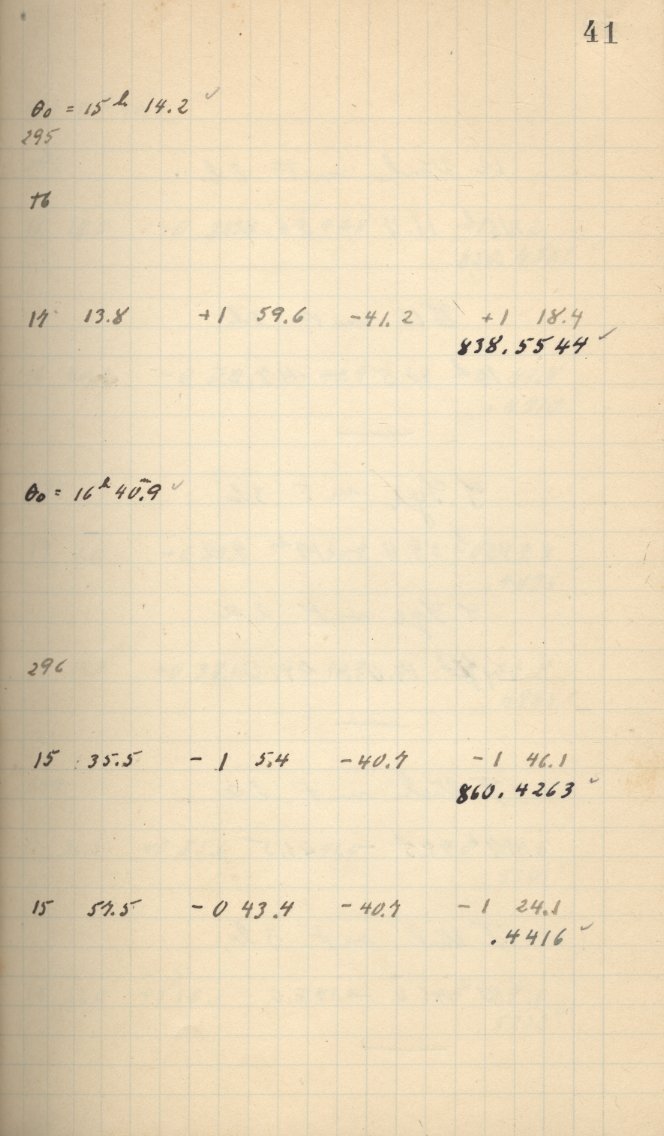 41
θ₀ = 15ʰ 14.2 ✓
295
+6
17 13.8 +1 59.6 -41.2 +1 18.4
838.5544 ✓
θ₀ = 16ʰ 40ᵐ.9 ✓
296
15 35.5 - 1 5.4 -40.7 - 1 46.1
860.4263 ✓
15 57.5 - 0 43.4 -40.7 - 1 24.1
.4416 ✓